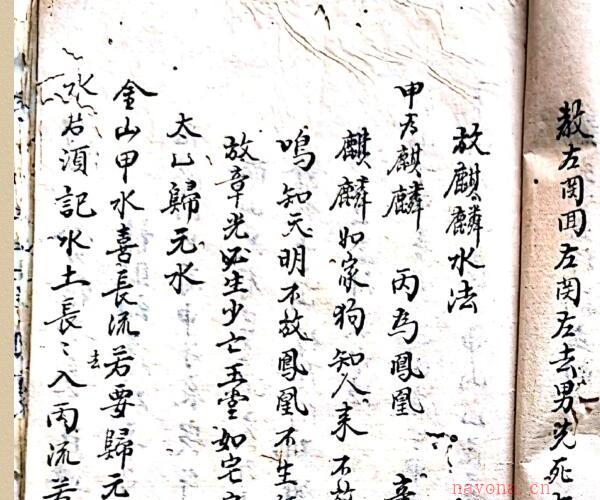 教左関囬左関左去男先死
故麒麟水法
甲为麒麟 丙為鳳凰
麒麟如家狗知人来不故
鳴知天明不故鳳凰不生
故章光必生少亡玉堂如宅
太乙歸元水
金山甲水喜長流若要歸元
水右須記水土長〻去入丙流若
nayona.cn